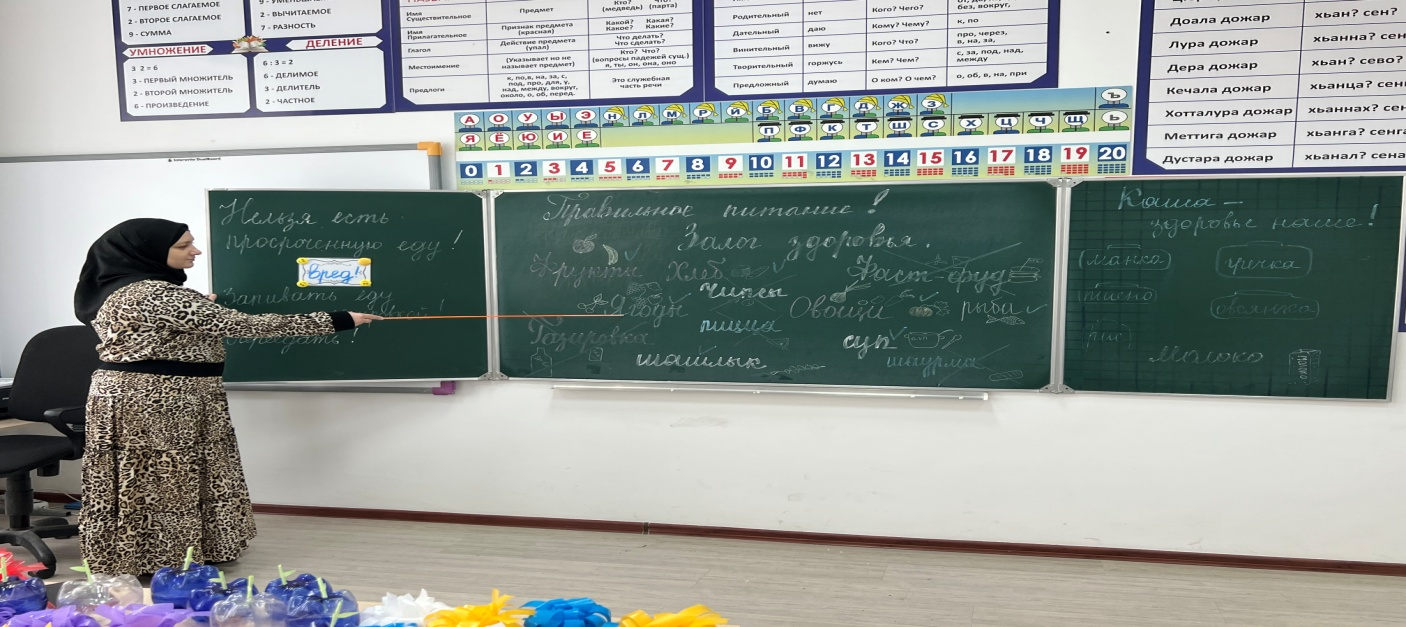 7 - ПЕРВОЕ СЛАГАЕМОЕ
2 - ВТОРОЕ СЛАГАЕМОЕ
9 - СУММА
2 - ВЫЧИТАЕМОЕ
7 - РАЗНОСТЬ
УМНОЖЕНИЕ
ДЕЛЕНИЕ
3 2 = 6
3 - ПЕРВЫЙ МНОЖИТЕЛЬ
2 - ВТОРОЙ МНОЖИТЕЛЬ
6 - ПРОИЗВЕДЕНИЕ
6 : 3 = 2
6 - ДЕЛИМОЕ
3 - ДЕЛИТЕЛЬ
2 - ЧАСТНОЕ
Имя Существительное
Предмет
Кто? Что?
(медведь) (парта)
Имя Прилагательное
Признак предмета (красная)
Какой? Какая?
Какое? Какие?
Глагол
Действие предмета (упал)
Что делать?
Что сделать?
Местоимение
(Указывает но не называет предмет)
Кто? Что?
(вопросы падежей сущ.)
я, ты, он, она, оно
Предлоги
к, по, в, на, за, с,
под, про, для, у,
над, между, вокруг,
около, о, об, перед.
Это служебная часть речи
Родительный нет Кого? Чего?
без, вокруг,
Дательный даю Кому? Чему? к, по
Винительный вижу Кого? Что? про, через, в, на, за,
Творительный горжусь Кем? Чем? с, за, под, над, между
Предложный думаю О ком? О чем? о, об, в, на, при
Доала дожар хьан? сен?
Лура дожар хьанна? сен
Дера дожар хьан? сево?
Кечала дожар хьанца? сен
Хотталура дожар хьаннах? сен
Меттига дожар хьанга? сенга
Дустара дожар хьанал? сена
А О У Ы Э Н Л М Р Й Б В Г Д Ж З Ъ
Я Ё Ю И Е П Ф К Т Ш С Х Ц Ч Щ Ь
0 1 2 3 4 5 6 7 8 9 10 11 12 13 14 15 16 17 18 19 20
Нельзя есть
просроченную еду!
Вред!
Запивать еду
Правильное питание!
Залог здоровья.
Фрукты Хлеб Фаст-фуд
Ягоды Чипсы Овощи рыба
Газировка пицца суп
шашлык шаурма
Каша –
здоровье наше!
(манка) гречка
пшено овсянка
рис молоко